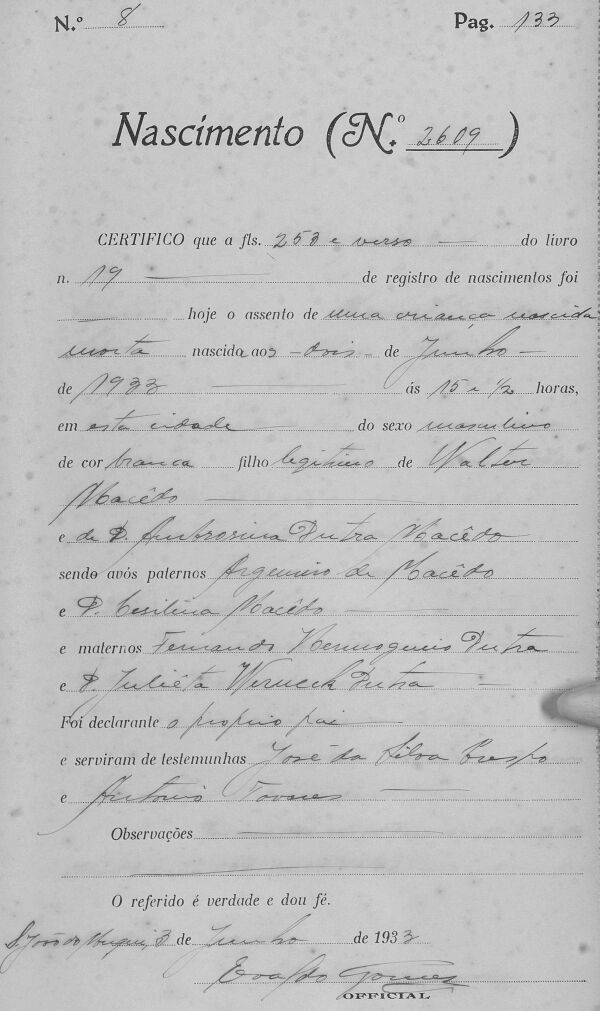 N.º 8 Pag. 133
Nascimento (N.º 2609)
CERTIFICO que a fls. 253 e verso do livro
n. 19 de registro de nascimentos foi
hoje o assento de uma criança nascida
morta nascido aos dois de Junho
de 1933 ás 15 e 1/2 horas,
em esta cidade do sexo masculino
de cor branca filho legitimo de Walter
Macêdo
e de D. Ambrosina Dutra Macêdo
sendo avós paternos Argemiro de Macêdo
e D. Macêdo
e maternos Fernando Hermogenio Dutra
e D. Juliêta Werneck Dutra
Foi declarante o proprio pai
e serviram de testemunhas José da Silva Crespo
e Antonio Tavares
Observações
O referido é verdade e dou fé.
S. João do 3 de Junho de 1933
Evaldo Gomes
OFFICIAL